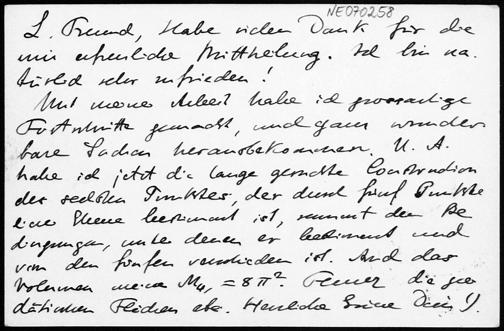 NE070258
L. Freund, Habe vielen Dank für die
mir erfreuliche Mittheilung. Ich bin na-
türlich sehr zufrieden!
Mit meiner Arbeit habe ich grossartige
Fortschritte gemacht, und ganz wunder-
bare Sachen herausbekommen. U. A.
habe ich jetzt die lange gesuchte Construction
des sechsten Punktes, der durch fünf Punkte
einer Ebene bestimmt ist, sammt den Be-
dingungen, unter denen er bestimmt und
von den fünfen verschieden ist. Auch das
Volumen meiner M₄, = 8π². Ferner die geo-
dätischen Flächen etc. Herzliche Grüsse Dein